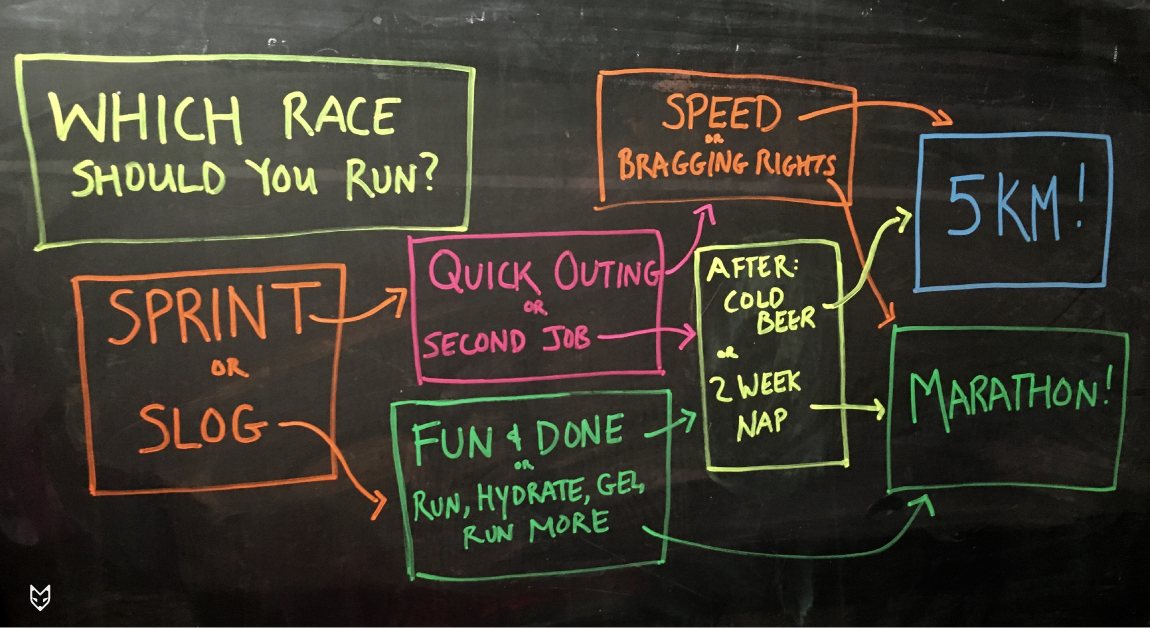 WHICH RACE
SHOULD YOU RUN?
SPRINT
OR
SLOG
QUICK OUTING
OR
SECOND JOB
FUN & DONE
OR
RUN, HYDRATE, GEL,
RUN MORE
SPEED
OR
BRAGGING RIGHTS
AFTER:
COLD
BEER
OR
2 WEEK
NAP
5KM!
MARATHON!